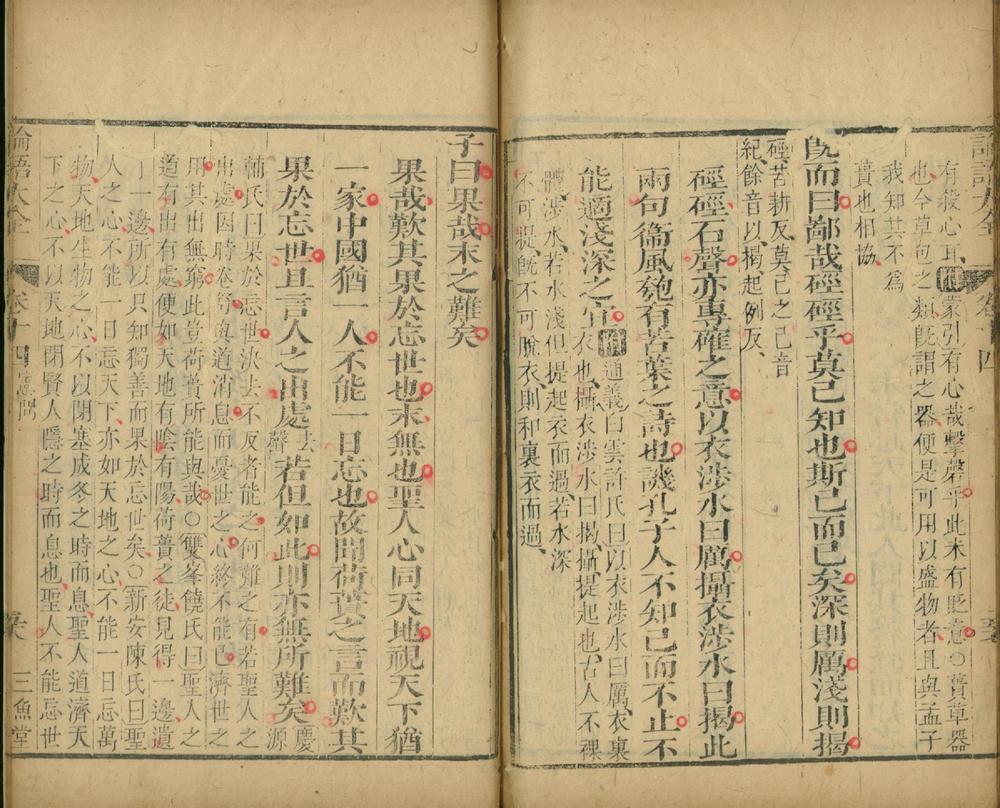 有殺心耳附蒙引有心哉擊磬乎此未有貶意○蕢草器
也今草包之類既謂之器便是可用以盛物者且與孟子
我知其不為
蕢也相協
既而曰鄙哉硜硜乎莫己知也斯已而已矣深則厲淺則揭
硜苦耕反莫己之己音
紀餘音以揭起例反
硜硜石聲亦專確之意以衣涉水曰厲攝衣涉水曰揭此
兩句衞風匏有苦葉之詩也譏孔子人不知己而不止不
能適淺深之宜附通義白雲許氏曰以衣涉水曰厲衣裏
衣也攝衣涉水曰揭攝提起也古人不裸
體涉水若水淺但提起衣而過若水深
不可提既不可脫衣則和裏衣而過
子曰果哉末之難矣
果哉歎其果於忘世也末無也聖人心同天地視天下猶
一家中國猶一人不能一日忘也故聞荷蕢之言而歎其
果於忘世且言人之出處去聲若但如此則亦無所難矣慶源
輔氏曰果於忘世決去不反者能之何難之有若聖人之
出處因時卷舒與道消息而憂世之心終不能已濟世之
用其出無窮此豈荷蕢所能與哉○雙峯饒氏曰聖人之
道有出有處便如天地有陰有陽荷蕢之徒見得一邊遺
一邊所以只知獨善而果於忘世矣○新安陳氏曰聖
人之心不能一日忘天下亦如天地之心不能一日忘萬
物天地生物之心不以閉塞成冬之時而息聖人道濟天
下之心不以天地閉賢人隱之時而息也聖人不能忘世
論語大全 卷十四 憲問 三魚堂